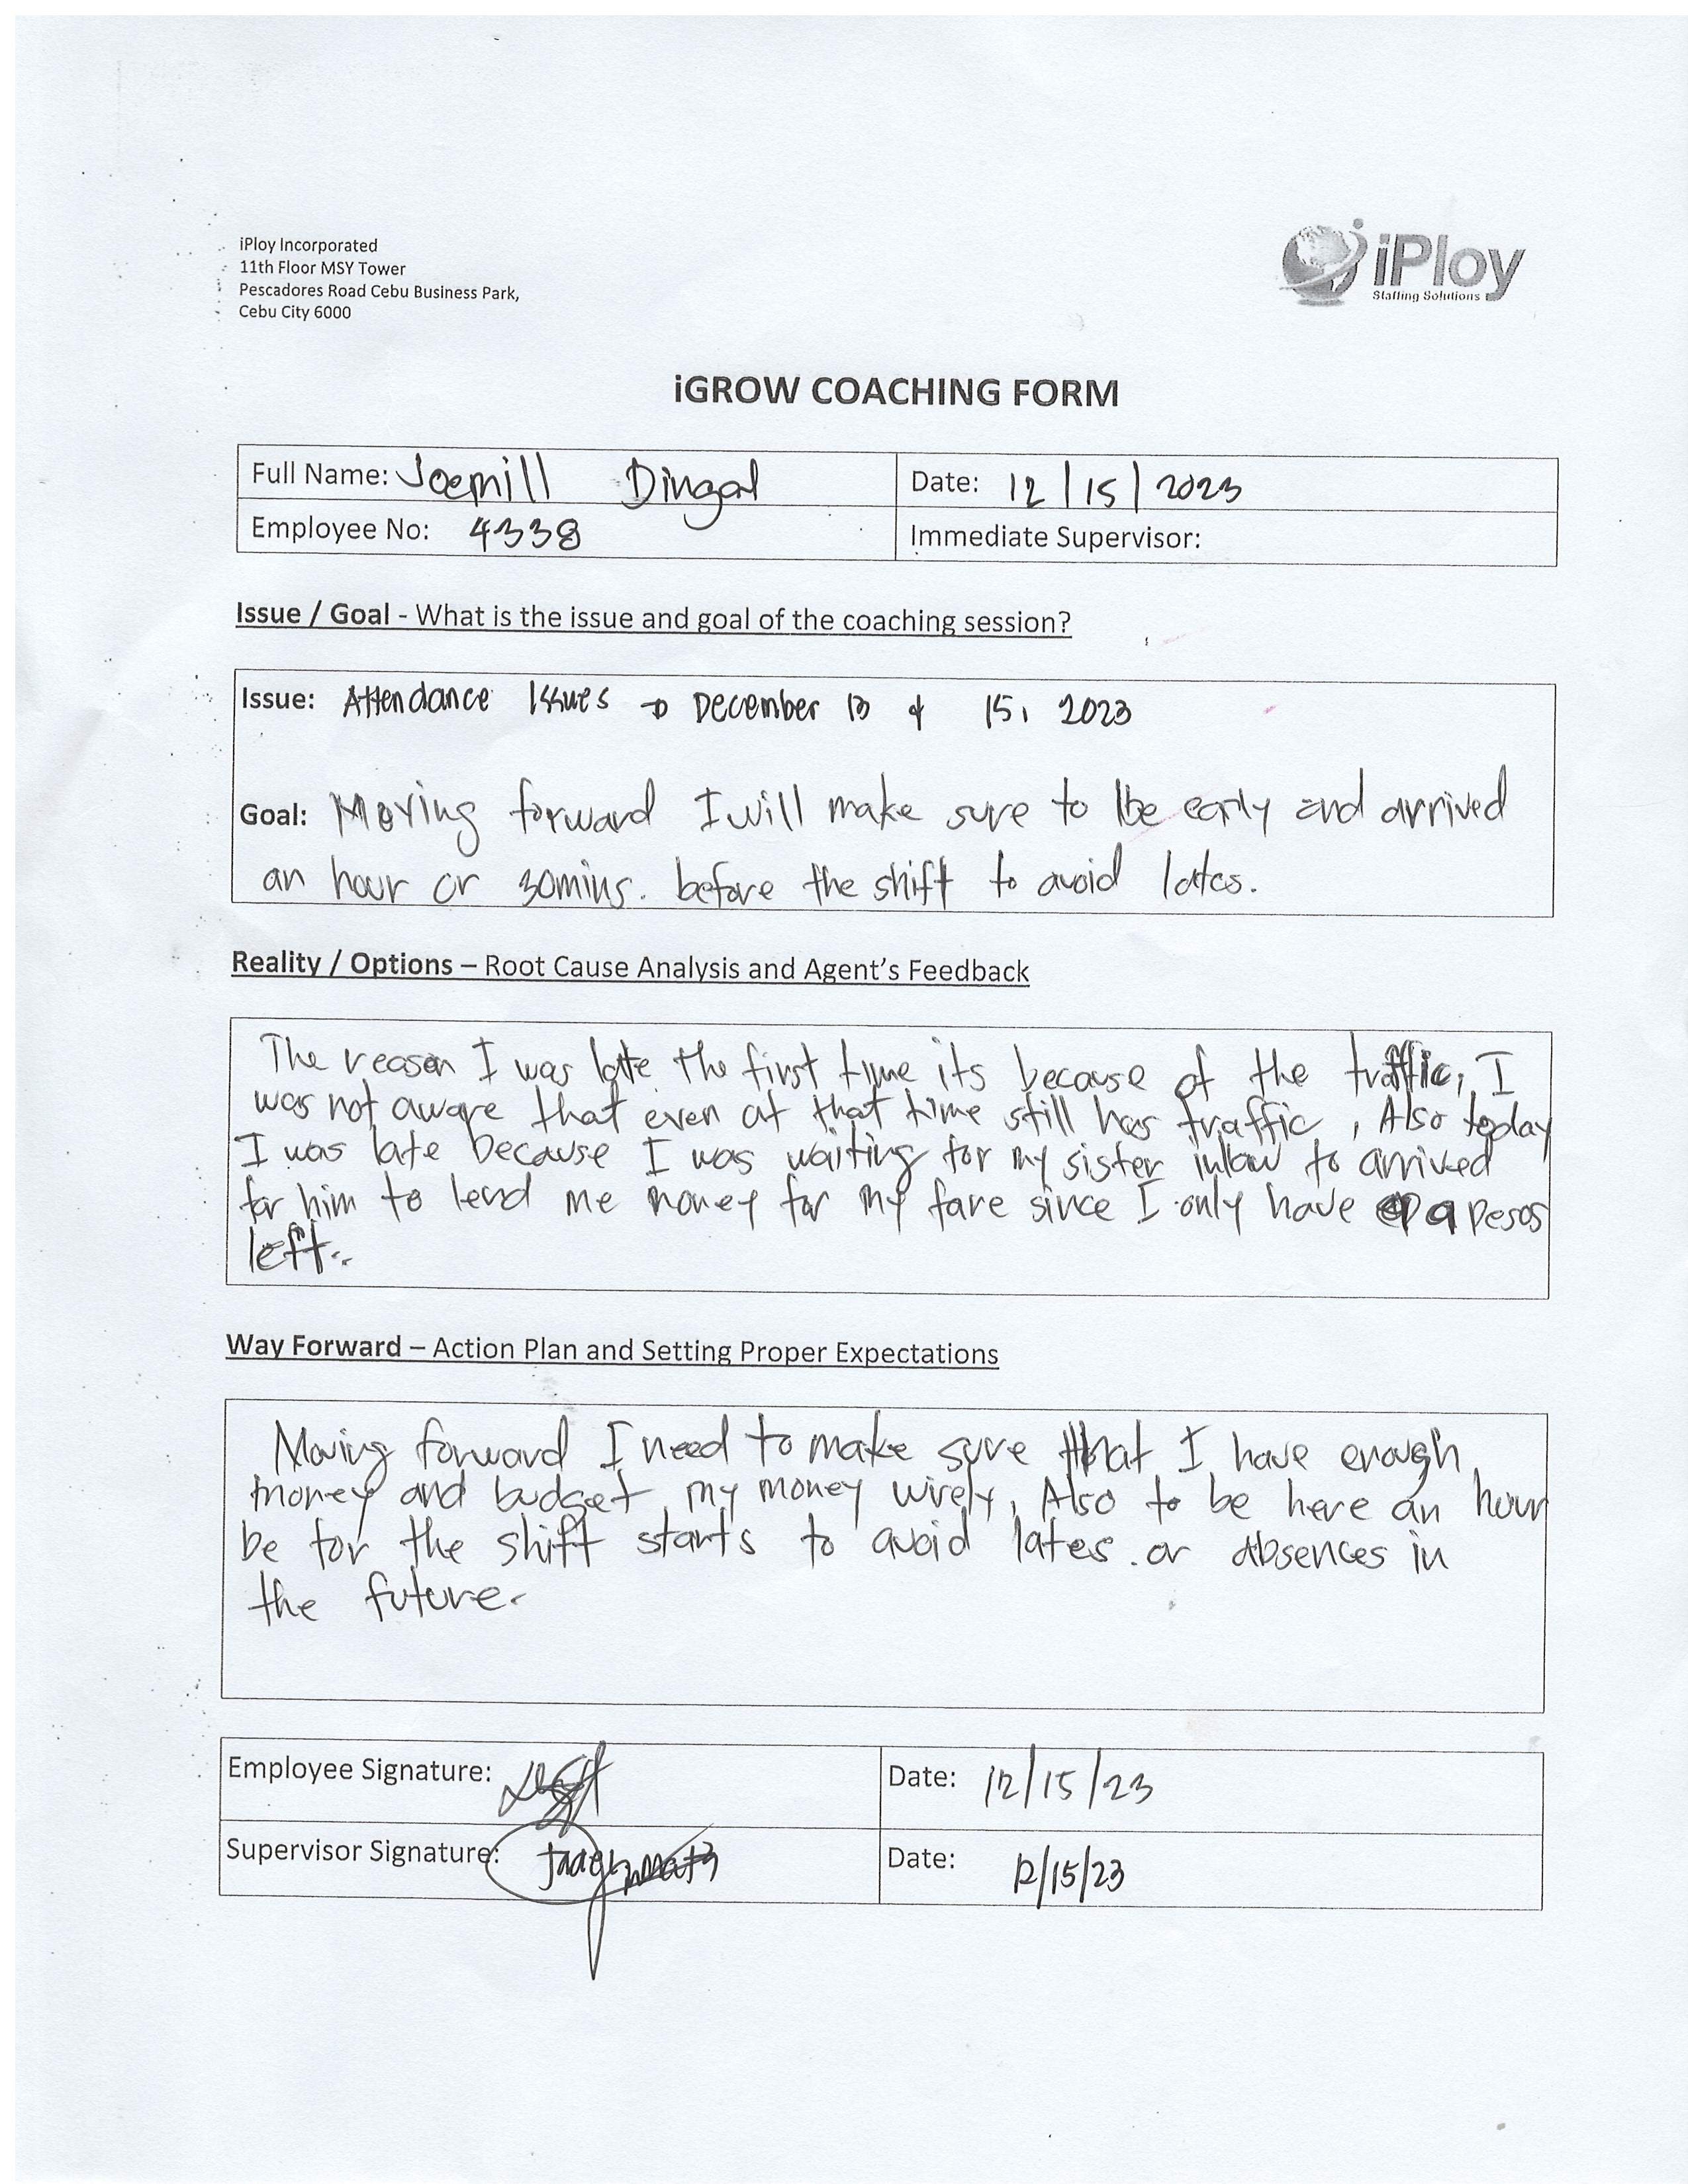 iPloy Incorporated
11th Floor MSY Tower
Pescadores Road Cebu Business Park,
Cebu City 6000
iPloy
Staffing Solutions
iGROW COACHING FORM
Full Name: Joemill Dingal
Date: 12/15/2023
Employee No: 4338
Immediate Supervisor:
Issue / Goal - What is the issue and goal of the coaching session?
Issue: Attendance Issues → December 13 & 15, 2023
Goal: Moving forward I will make sure to be early and arrived
an hour or 30mins. before the shift to avoid lates.
Reality / Options – Root Cause Analysis and Agent's Feedback
The reason I was late the first time its because of the traffic, I
was not aware that even at that time still has traffic, Also today
I was late because I was waiting for my sister inlaw to arrived
for him to lend me money for my fare since I only have 9 pesos
left..
Way Forward – Action Plan and Setting Proper Expectations
Moving forward I need to make sure that I have enough
money and budget my money wisely, Also to be here an hour
be for the shift starts to avoid lates. or absences in
the future.
Employee Signature:
Date: 12/15/23
Supervisor Signature:
Date: 12/15/23